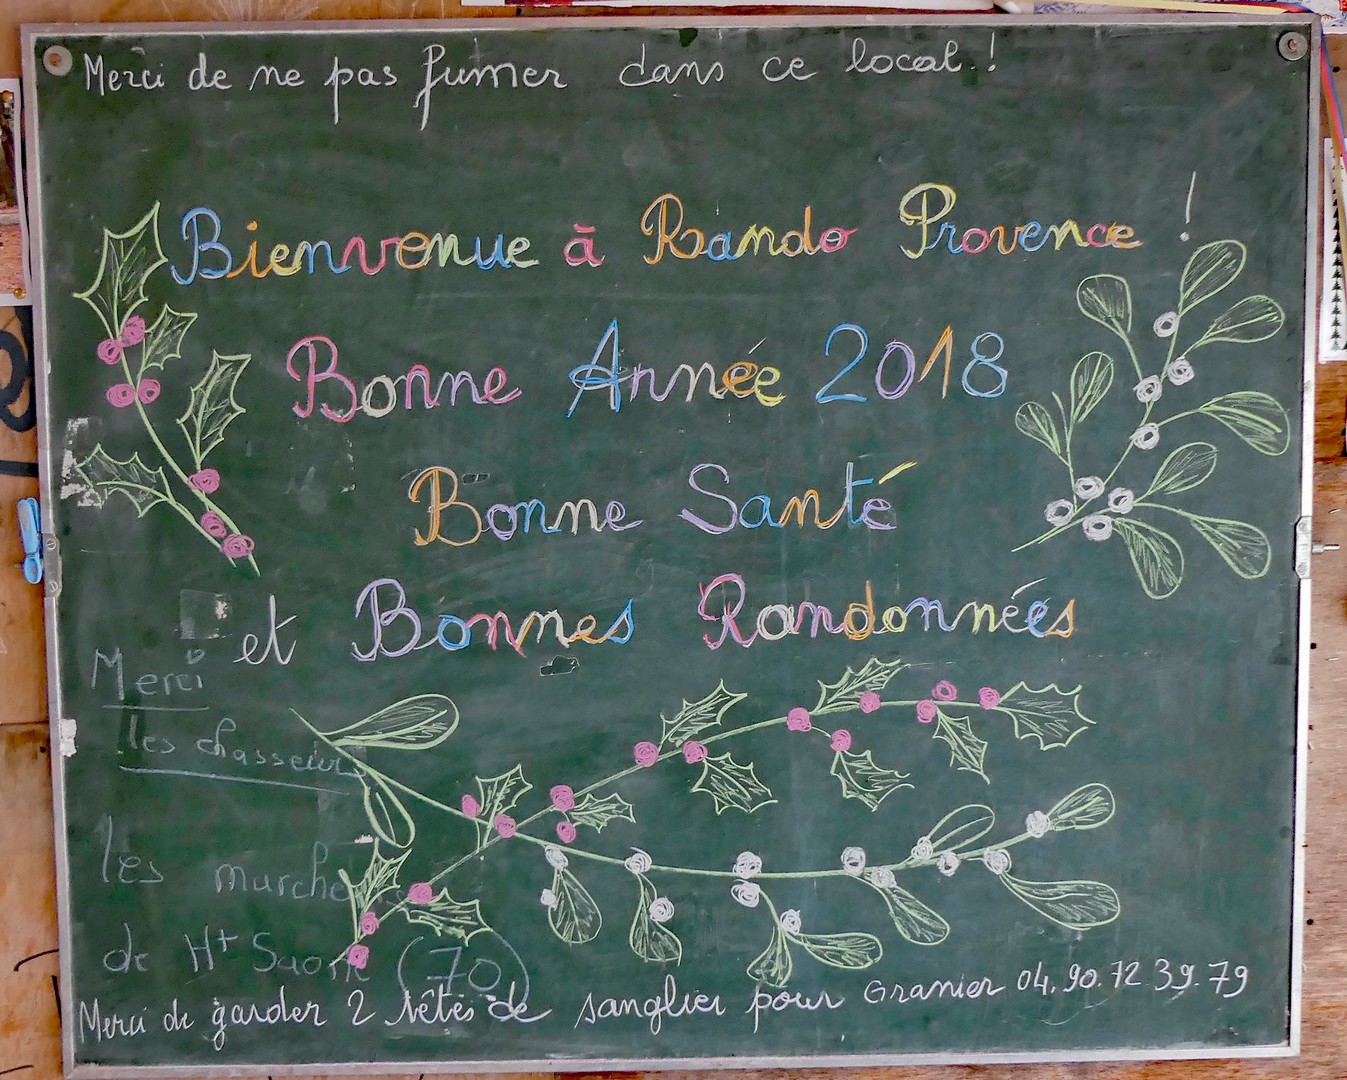 Merci de ne pas fumer dans ce local.!
Bienvenue à Rando Provence !
Bonne Année 2018
Bonne Santé
et Bonnes Randonnées
Merci
les chasseurs
les marcheurs
de Hte Saone (70)
Merci de garder 2 têtes de sanglier pour Granier 04.90.72.39.79